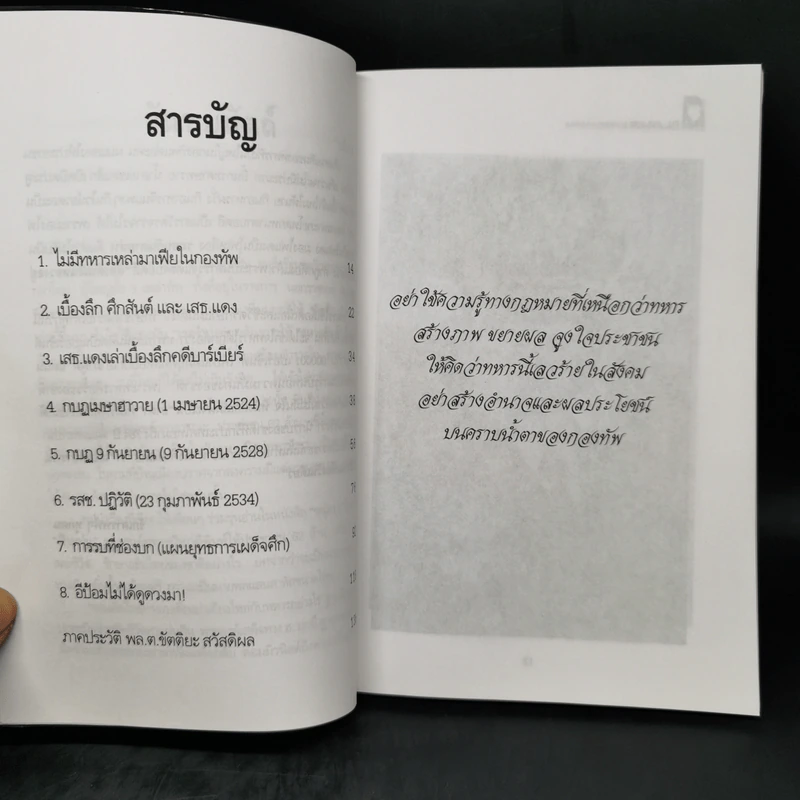 สารบัญ
1. ไม่มีทหารเหล่ามาเฟียในกองทัพ 14
2. เบื้องลึก ศึกสันต์ และ เสธ.แดง 22
3. เสธ.แดงเล่าเบื้องลึกคดีบาร์เบียร์ 34
4. กบฏเมษาฮาวาย (1 เมษายน 2524) 38
5. กบฏ 9 กันยายน (9 กันยายน 2528)
6. รสช. ปฏิวัติ (23 กุมภาพันธ์ 2534)
7. การรบที่ช่องบก (แผนยุทธการเผด็จศึก)
8. อีป้อมไม่ได้ดูดวงมา!
ภาคประวัติ พล.ต.ขัตติยะ สวัสดิผล
อย่าใช้ความรู้ทางกฎหมายที่เหนือกว่าทหาร
สร้างภาพ ขยายผล จูงใจประชาชน
ให้คิดว่าทหารนี้เลวร้ายในสังคม
อย่าสร้างอำนาจและผลประโยชน์
บนคราบน้ำตาของกองทัพ